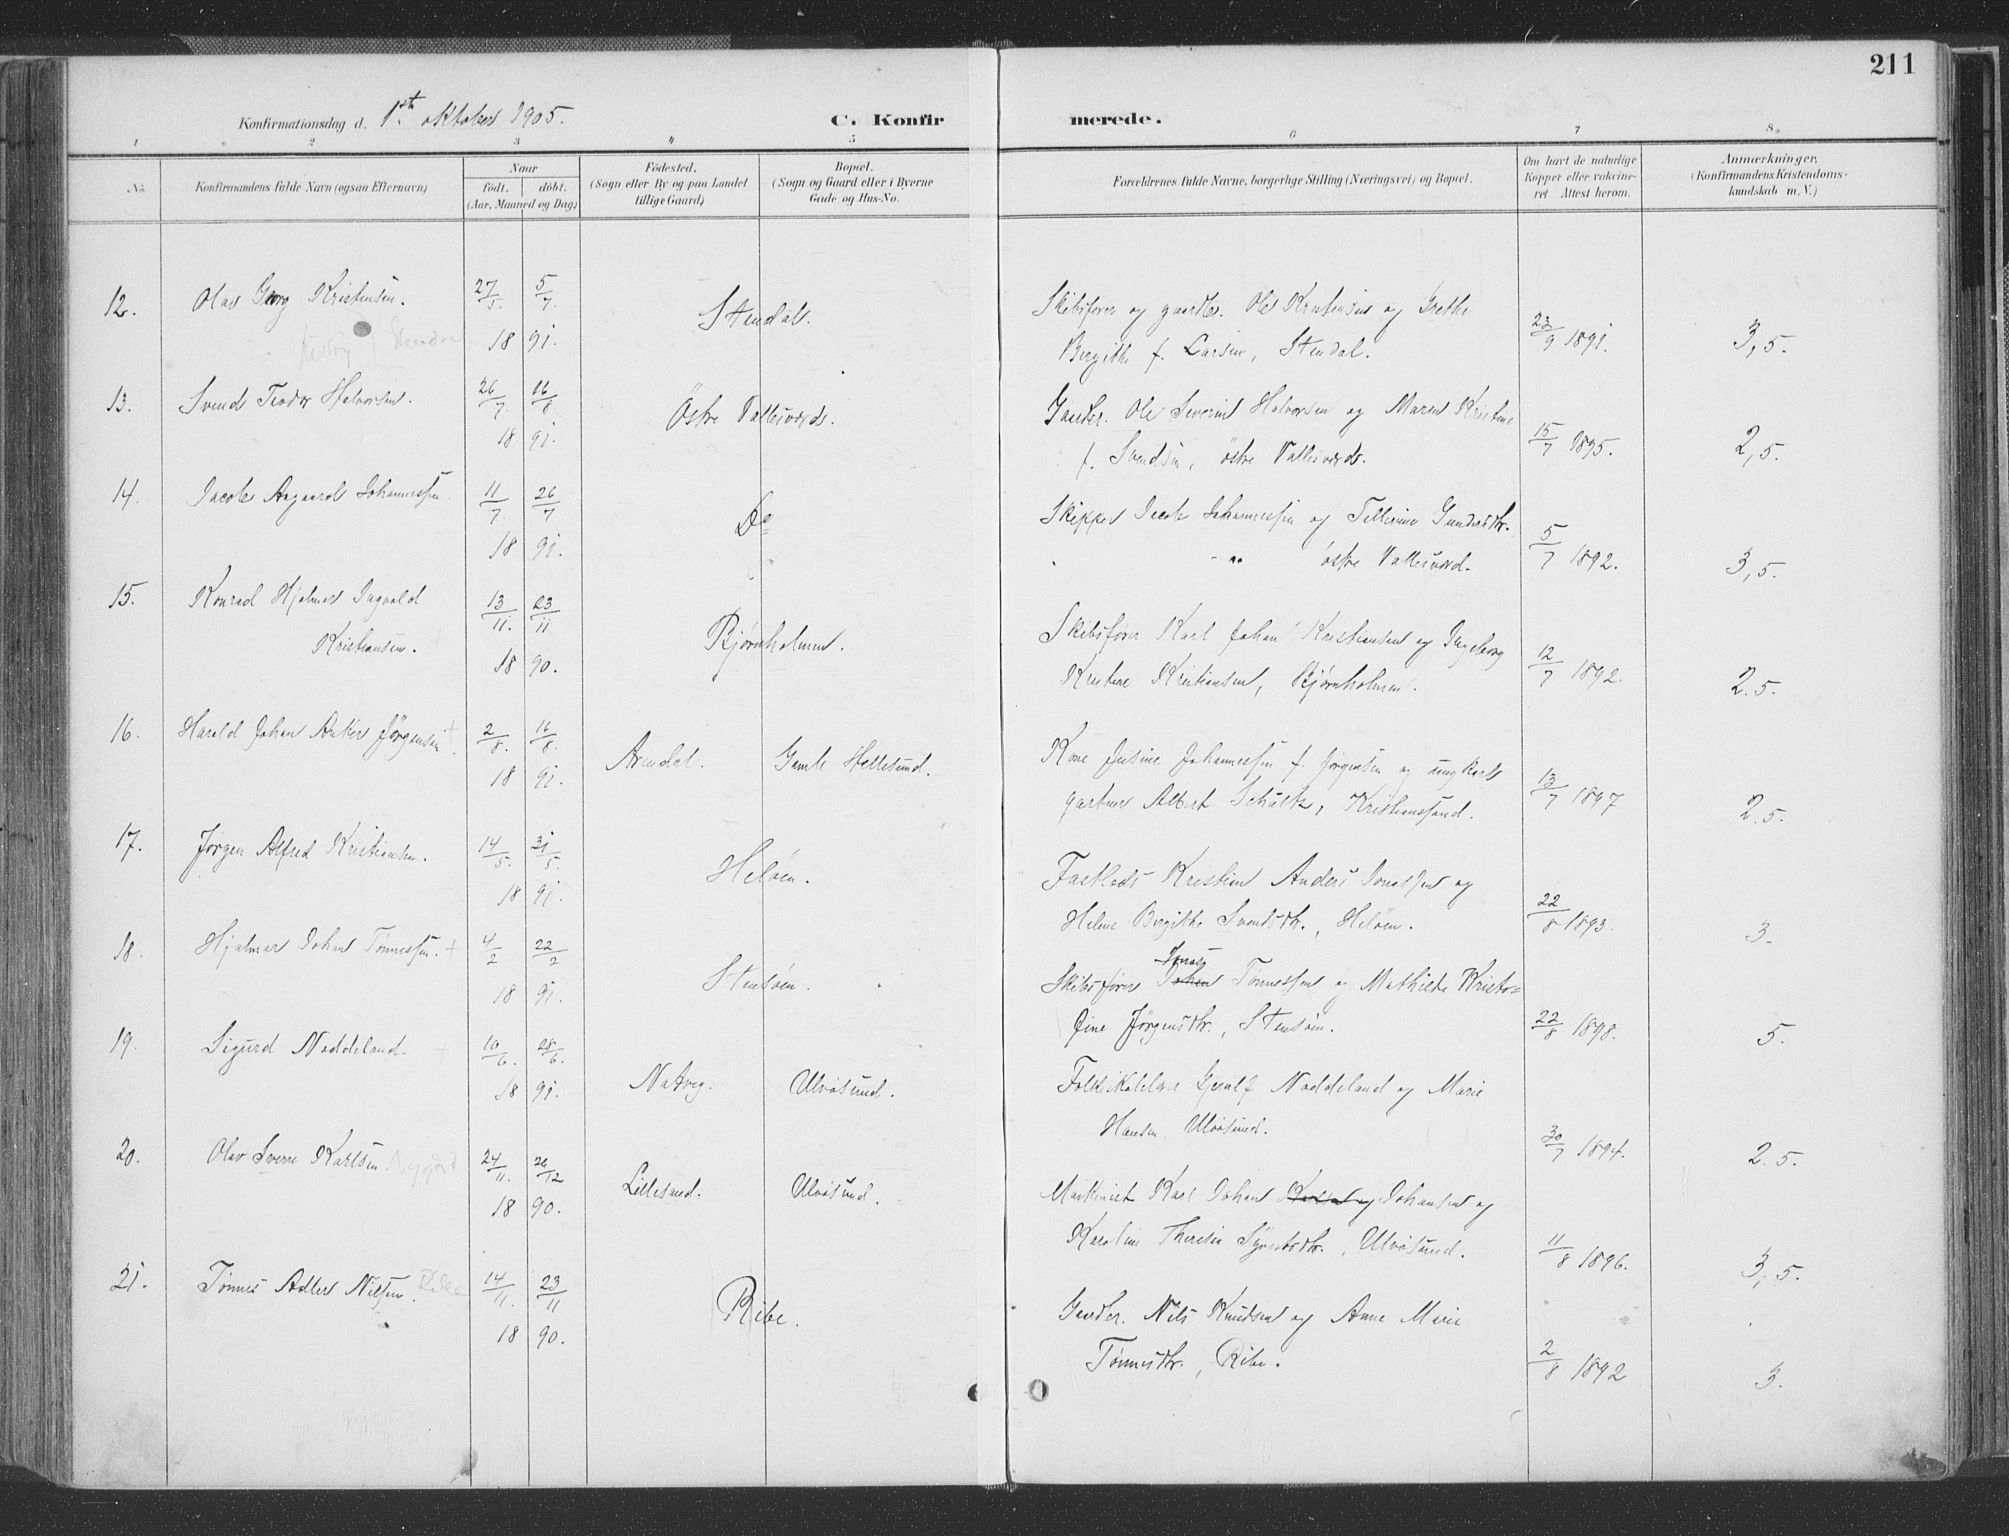 211
Konfirmationsdag d. 1ste oktober 1905.
C. Konfirmerede.
1 2 3 4 5 6 7 8
No.
Konfirmandens fulde Navn (ogsaa Efternavn)
Naar
födt. döbt.
(Aar, Maaned og Dag)
Födested.
(Sogn eller By og paa Landet
tillige Gaard)
Bopæl.
(Sogn og Gaard eller i Byerne
Gade og Hus-No.
Forældrenes fulde Navne, borgerlige Stilling (Næringsvei) og Bopæl.
Om havt de naturlige
Kopper eller vakcine-
ret Attest herom.
Anmærkninger,
(Konfirmandens Kristendoms-
kundskab m. V.)
12. Olav Georg Kristensen. 27/5. 5/7. Stendal. Skibsfører og gaardbr. Ole Kristensen og Grethe
18 91. Bergithe f. Larsen, Stendal. 23/9 1891. 3,5.
13. Svend Teodor Halvorsen. 26/7. 16/8 Östre Vallesværd. Gaardbr. Ole Severin Halvorsen og Maren Kristine
18 91. f. Svendsen, östre Vallesværd. 15/7 1895. 2,5.
14. Jacob Aagaard Johannessen. 11/7. 26/7 Do Skipper Jacob Johannessen og Tellerine Gundersdtr.
18 91. östre Vallesværd. 5/7 1892. 3,5.
15. Konrad Hjalmar Ingvald 13/11. 23/11
Kristiansen. Bjørnholmen. Skibsfører Karl Johan Kristiansen og Ingeborg
18 90. Kristine Kristiansen, Bjørnholmen. 12/7 1892. 2.5.
16. Harald Johan Anker Jørgensen. 2/8. 16/8. Arendal. Gamle Hellesund. Kone Justine Johannessen f. Jørgensen og ungkarl
18 91. gartner Albert Schultz, Kristianssand. 13/7 1897 2.5.
17. Jørgen Alfred Kristiansen. 14/5. 31/5. Helöen. Fastlods Kristian Anders Jonassen og
18 91. Helene Bergithe Svendsdtr., Helöen. 22/8 1893. 3.
18. Hjalmar Johan Tønnessen. 4/2 22/2 Stensöen. Skibsfører Johan Jonas Tønnessen og Mathilde Kristo=
18 91. fine Jørgensdtr., Stensöen. 22/8 1898. 5.
19. Sigurd Noddeland. 10/6. 28/6. Natvig. Ulvösund. Folkskolelærer Gjerulf Noddeland og Marie
18 91. Hansen, Ulvösund. 30/7 1894. 2.5.
20. Olav Sverre Karlsen. Nygård 24/11. 26/12 Lillesand. Ulvösund. Maskinist Karl Johan Johansen og
18 90. Karoline Theresie Syvertsdtr., Ulvösund. 11/8 1896. 3,5.
21. Tønnes Adler Nilsen. Ribe 14/11. 23/11 Ribe. Gaardbr. Nils Knudsen og Anne Marie
18 90. Tønnesdtr., Ribe. 2/8 1892 3.